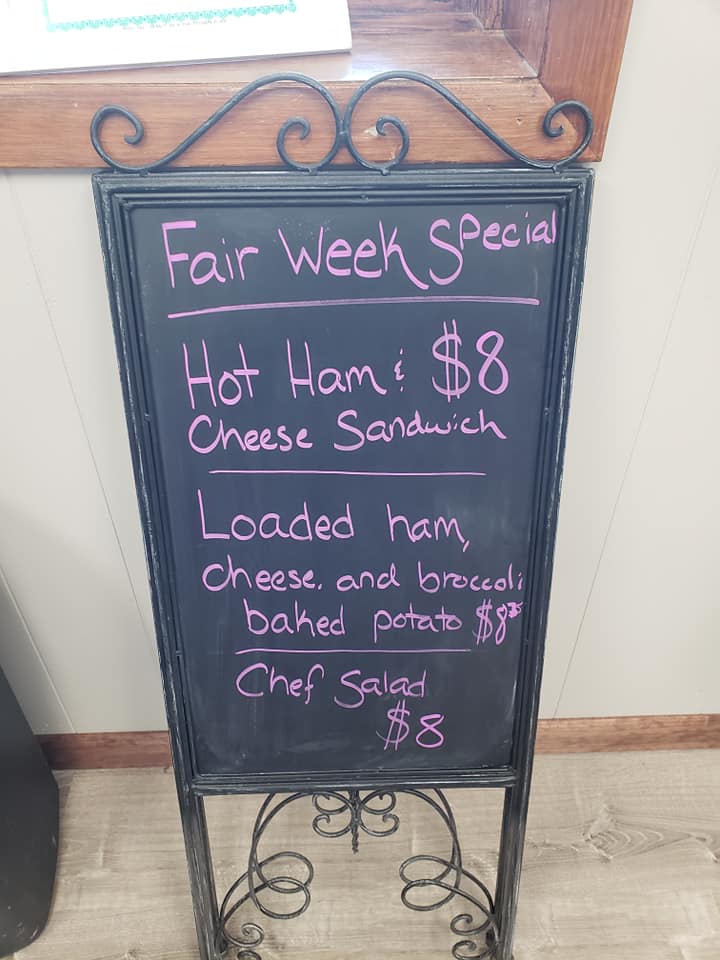 Fair Week Special
Hot Ham & $8
Cheese Sandwich
Loaded ham,
cheese, and broccoli
baked potato
Chef Salad
$8